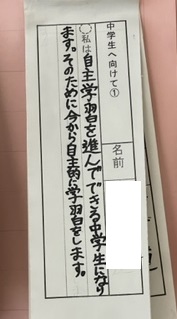 中学生へ向けて①
名前
私は自主学習を進んでできる中学生になり
ます。そのために今から自主的に学習をします。